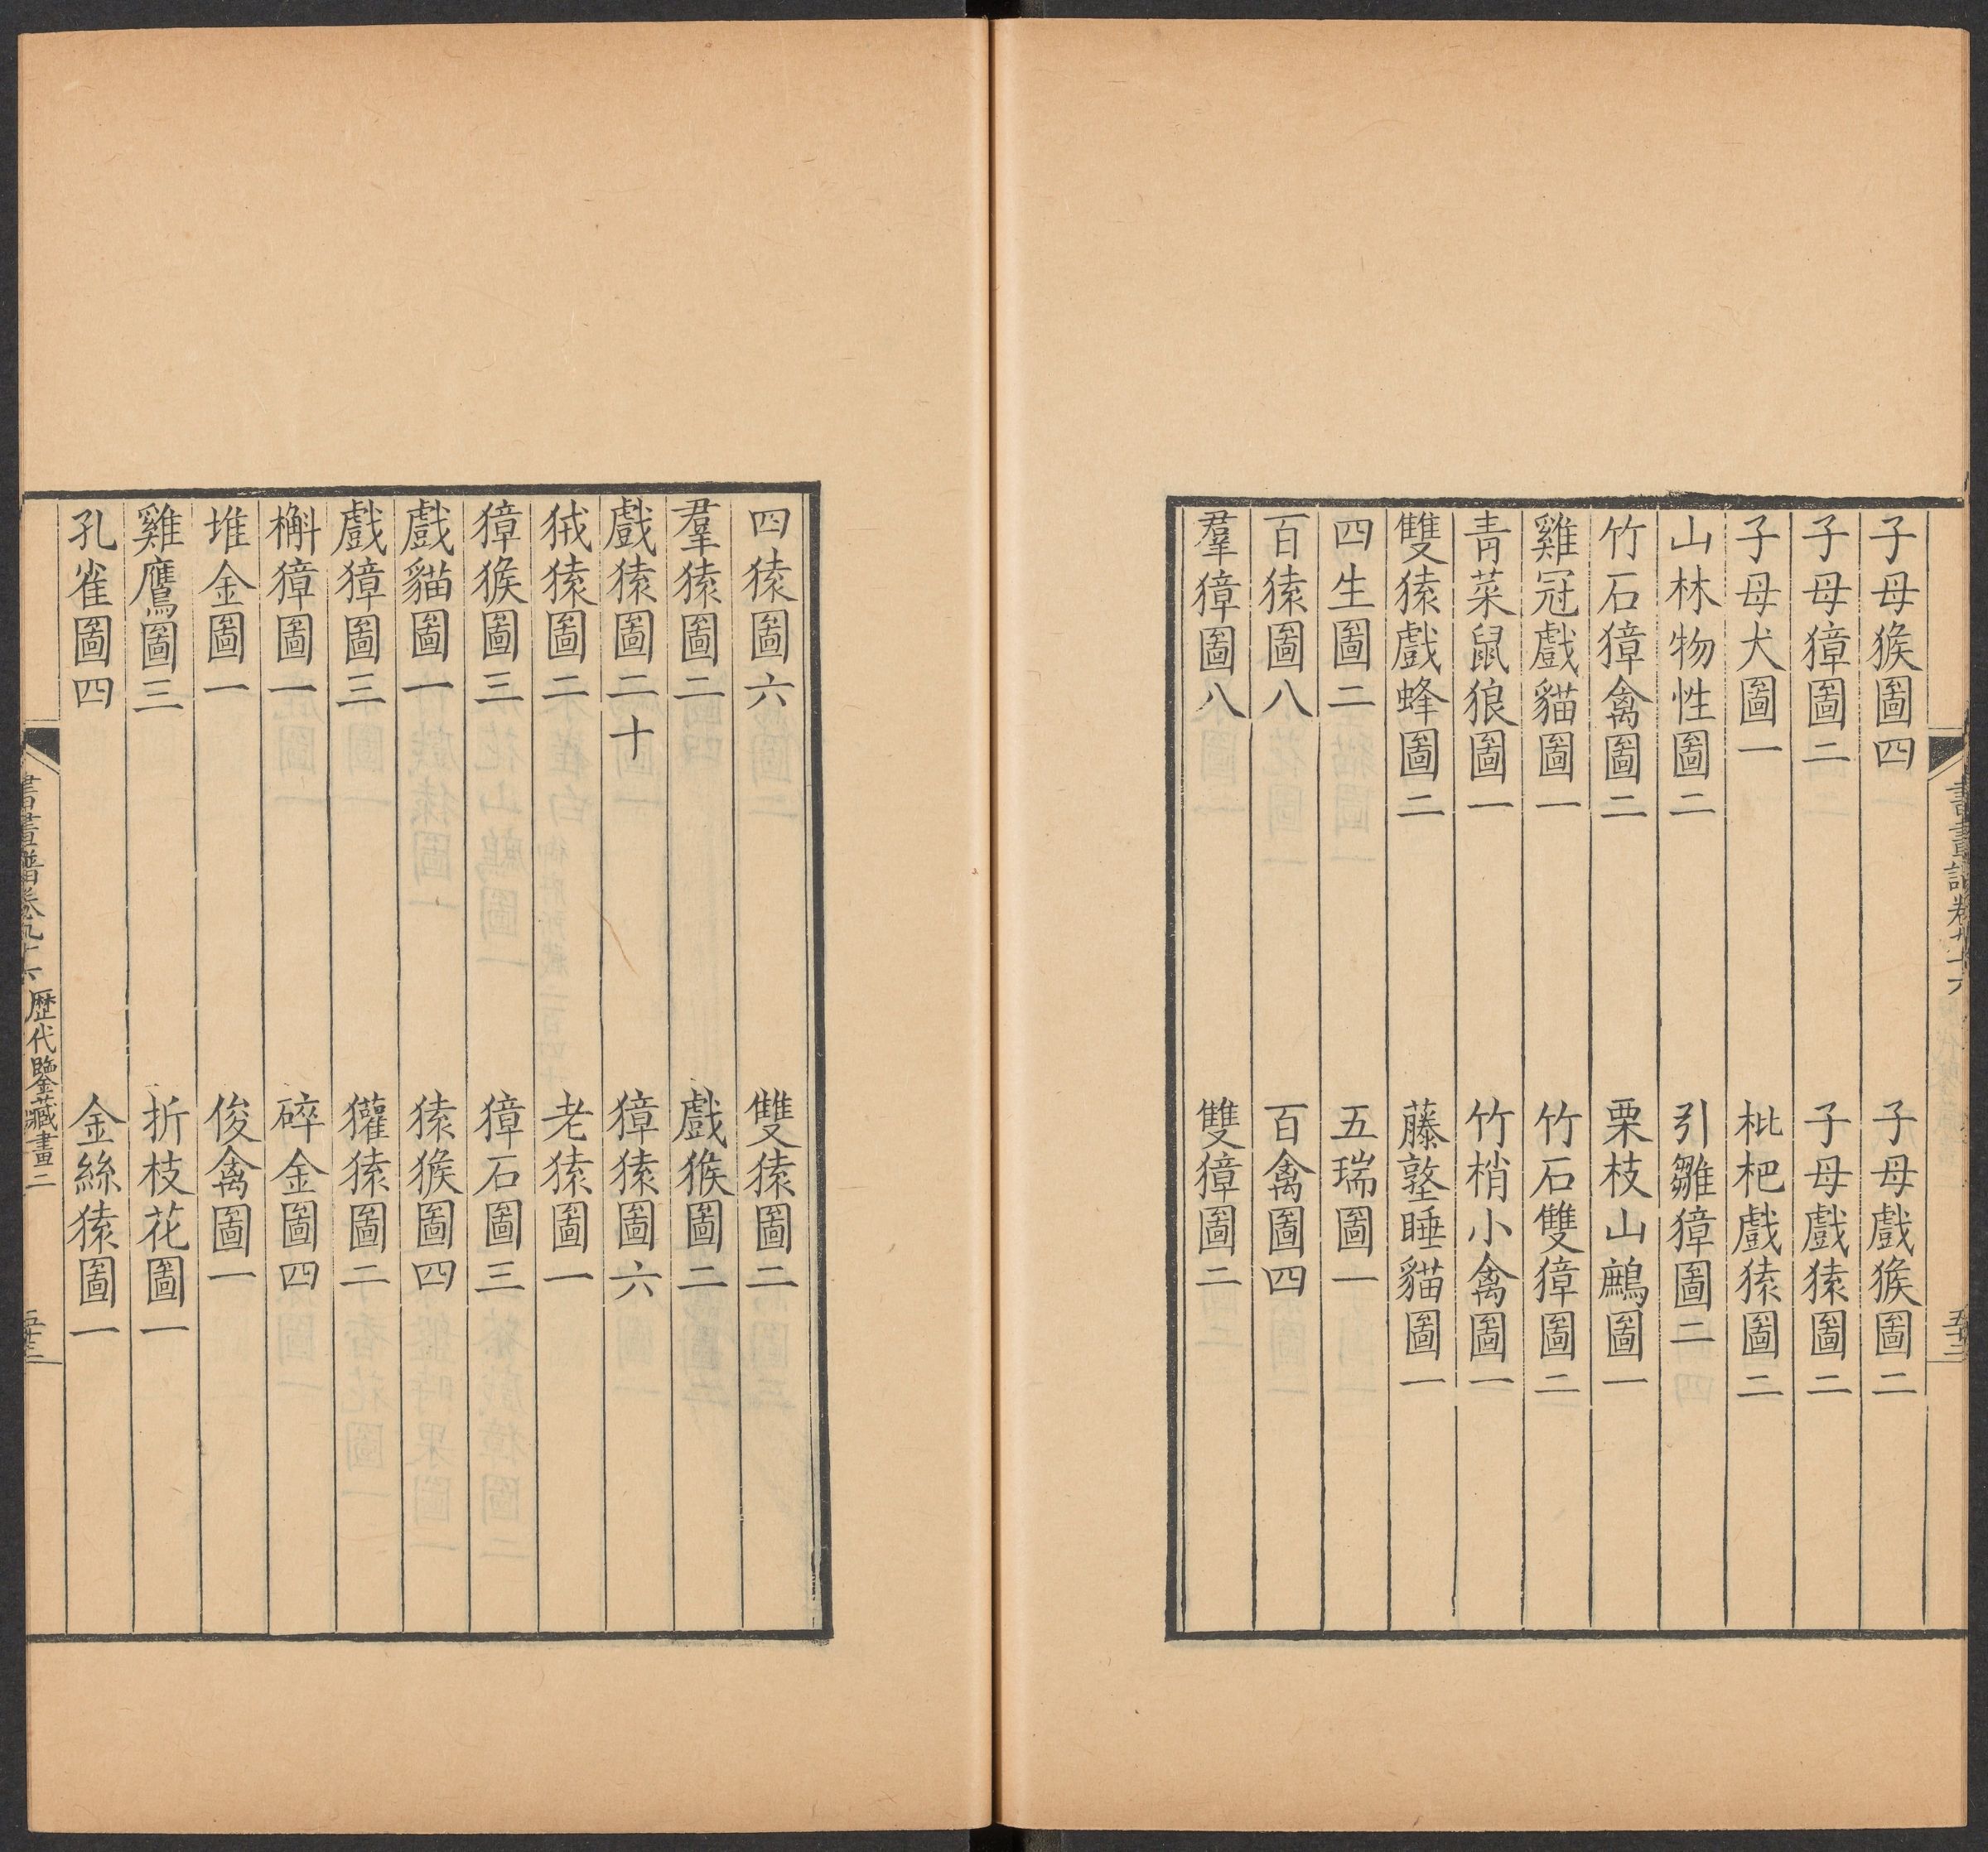 子母猴圖四　子母戲猴圖二
子母獐圖二　子母戲猿圖二
子母犬圖一　枇杷戲猿圖二
山林物性圖二　引雛獐圖二
竹石獐禽圖二　栗枝山鷓圖一
雞冠戲貓圖一　竹石雙獐圖二
青菜鼠狼圖一　竹梢小禽圖一
雙猿戲蜂圖二　藤墩睡貓圖一
四生圖二　五瑞圖一
百猿圖八　百禽圖四
羣獐圖八　雙獐圖二
四猿圖六　雙猿圖二
羣猿圖二　戲猴圖二
戲猿圖二十　獐猿圖六
狨猿圖二　老猿圖一
獐猴圖三　獐石圖三
戲貓圖一　猿猴圖四
戲獐圖三　獾猿圖二
槲獐圖一　碎金圖四
堆金圖一　俊禽圖一
雞鷹圖三　折枝花圖一
孔雀圖四　金絲猿圖一
書畫譜卷九十六　歷代鑒藏畫二